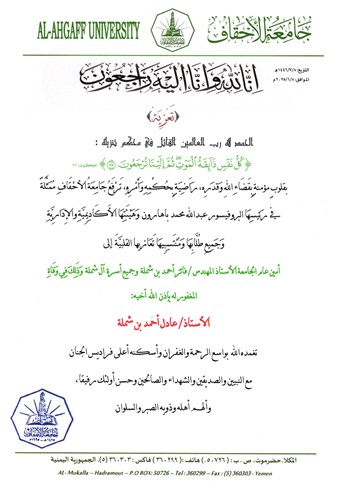 AL-AHGAFF UNIVERSITY
جامعة الأحقاف
إنا لله وإنا إليه راجعون
﴿تعزية﴾
الحمد لله رب العالمين القائل في محكم تنزيله :
﴿كُلُّ نَفْسٍ ذَائِقَةُ الْمَوْتِ ثُمَّ إِلَيْنَا تُرْجَعُونَ﴾
بقلوب مؤمنة بقضاء الله وقدره، راضية بحكمه وأمره، ترفع جامعة الأحقاف ممثلة
في رئيسها البروفيسور عبدالله محمد باهارون وهيئتيها الأكاديمية والإدارية
وجميع طلابها ومنتسبيها تعازيها القلبية إلى
أمين عام الجامعة الأستاذ المهندس/ فائز أحمد بن شملة وجميع أسرة آل شملة وذلك في وفاة
المغفور له بإذن الله أخيه:
الأستاذ/ عادل أحمد بن شملة
تغمده الله بواسع الرحمة والغفران وأسكنه أعلى فراديس الجنان
مع النبيين والصديقين والشهداء والصالحين وحسن أولئك رفيقا،
وألهم أهله وذويه الصبر والسلوان
المكلا، حضرموت، ص.ب: (٥٠٧٢٦) هاتف: (٣٦٠٢٩٩) فاكس: (٣٦٠٣٠٣) (٥)، الجمهورية اليمنية
AL-Mukalla – Hadramout – P.O BOX: 50726 – Tel : 360299 – Fax : (5) 360303 - Yemen